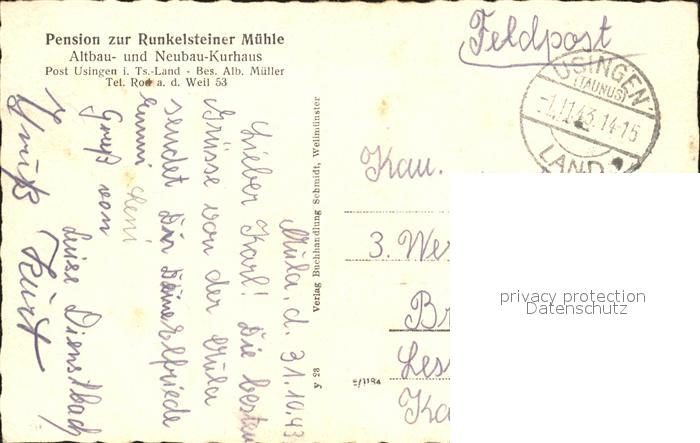 Pension zur Runkelsteiner Mühle
Altbau- und Neubau-Kurhaus
Post Usingen i. Ts.-Land - Bes. Alb. Müller
Tel. Rod a. d. Weil 53
Feldpost
USINGEN
(TAUNUS)
-1.11.43.14-15
LAND
d. 31.10.43
Lieber Karl! Die besten
Grüsse von der
sendet Dir Deine Elfriede
Leni
Gruß von
Luise Dienstbach
Gruß Kurt
Verlag Buchhandlung Schmidt, Weilmünster
y 28
Kan.
3. We
Br
Les
Ka
privacy protection
Datenschutz